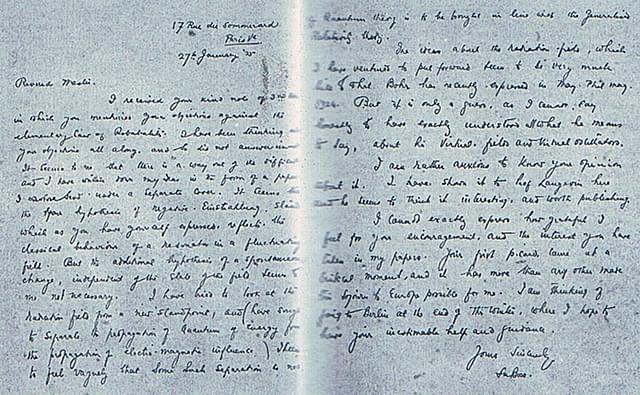 17 Rue du Sommerard
Paris Ve
27th January '25
Revered Master,
I received your kind note of 3rd
in which you mention your objections against the
elementary law of Probability. I have been thinking
your objection all along, and so did not answer
It seems to me that there is a way out of the
and I have written down my ideas in the form of a paper
I send under a separate cover. It seems
the hypothesis of negative Einstrahlung stands
which as you have yourself expressed, reflects the
classical behaviour of a resonator in a fluctuating
field. But the additional hypothesis of a spontaneous
change, independent of the state of the field seems to
me not necessary. I have tried to look at the
radiation field from a new standpoint, and have sought
to separate the propagation of Quantum of energy from
the propagation of electro-magnetic influence. I
to feel vaguely that some such separation is
Quantum theory is to be brought in line with the Generalised
Relativity theory.
The ideas about the radiation-field, which
I have ventured to put forward seem to be very much
like what Bohr has recently expressed in May Phil mag.
1924. But it is only a guess, as I cannot say
to have exactly understood all what he means
to say, about his virtual fields and virtual oscillators.
I am rather anxious to know your opinion
about it. I have shown it to Prof Langevin here
and he seems to think it interesting, and worth publishing.
I cannot exactly express how grateful I
feel for your encouragement, and the interest you have
taken in my papers. Your first p.card came at a
critical moment, and it has more than any other made
the sojourn to Europe possible for me. I am thinking of
going to Berlin at the end of the winter, where I hope to
have your inestimable help and guidance.
Yours Sincerely
SnBose.